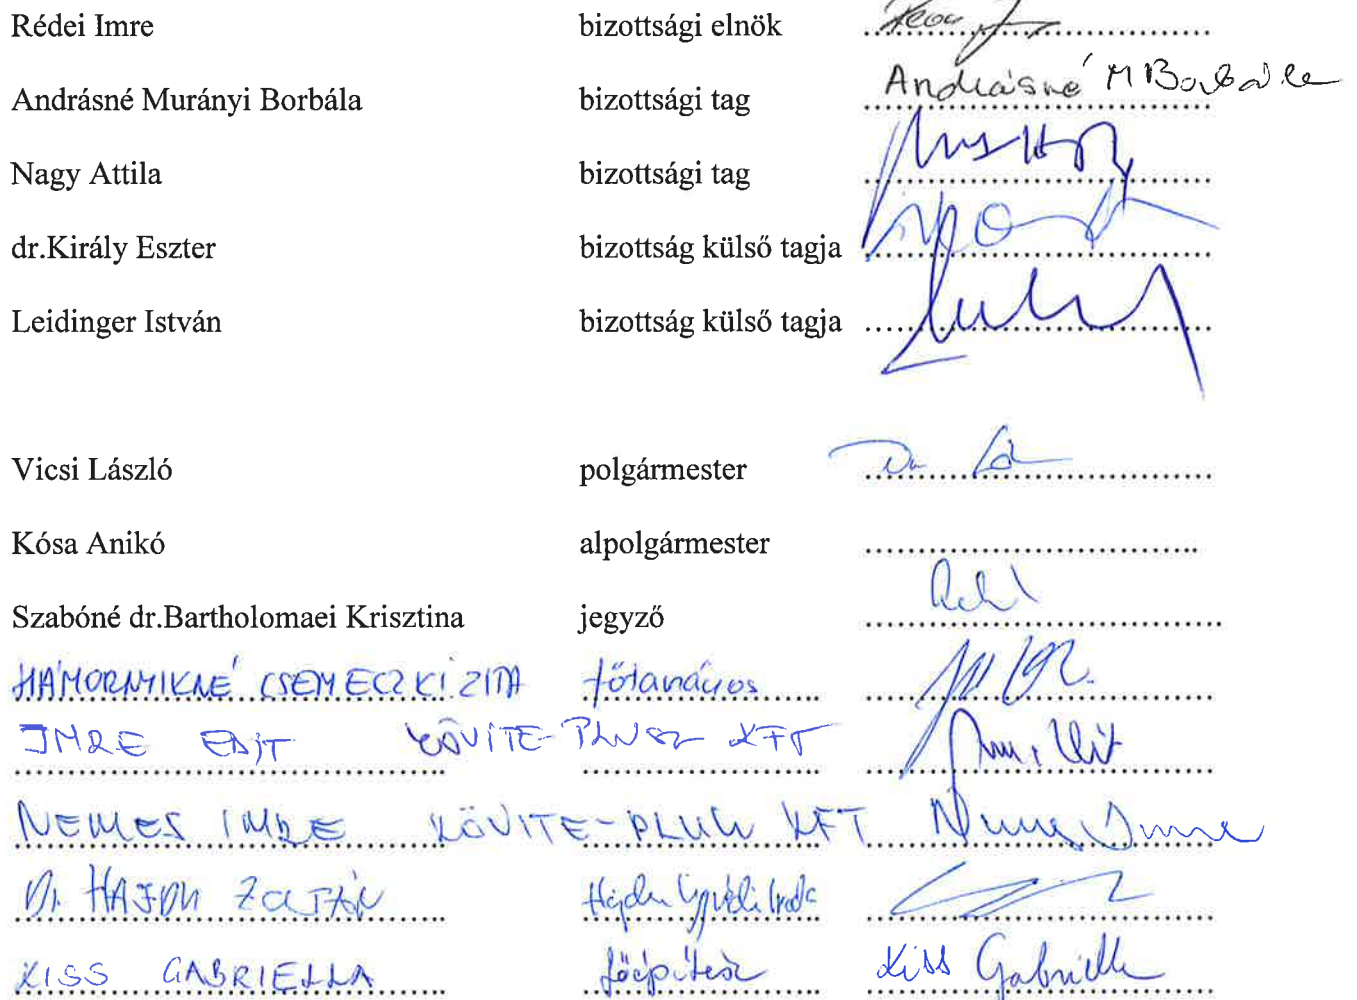 Rédei Imre bizottsági elnök
Andrásné Murányi Borbála bizottsági tag Andrásné M Borbála
Nagy Attila bizottsági tag
dr.Király Eszter bizottság külső tagja
Leidinger István bizottság külső tagja
Vicsi László polgármester
Kósa Anikó alpolgármester
Szabóné dr.Bartholomaei Krisztina jegyző
HÁMORNYIKNÉ CSEMECZKI ZITA főtanácsos
IMRE EDIT KÖVITE-PLUSZ KFT
NEMES IMRE KÖVITE-PLUSZ KFT Nemes Imre
Dr. HAJDU ZOLTÁN Hajdu Ügyvédi Iroda
KISS GABRIELLA főépítész Kiss Gabriella